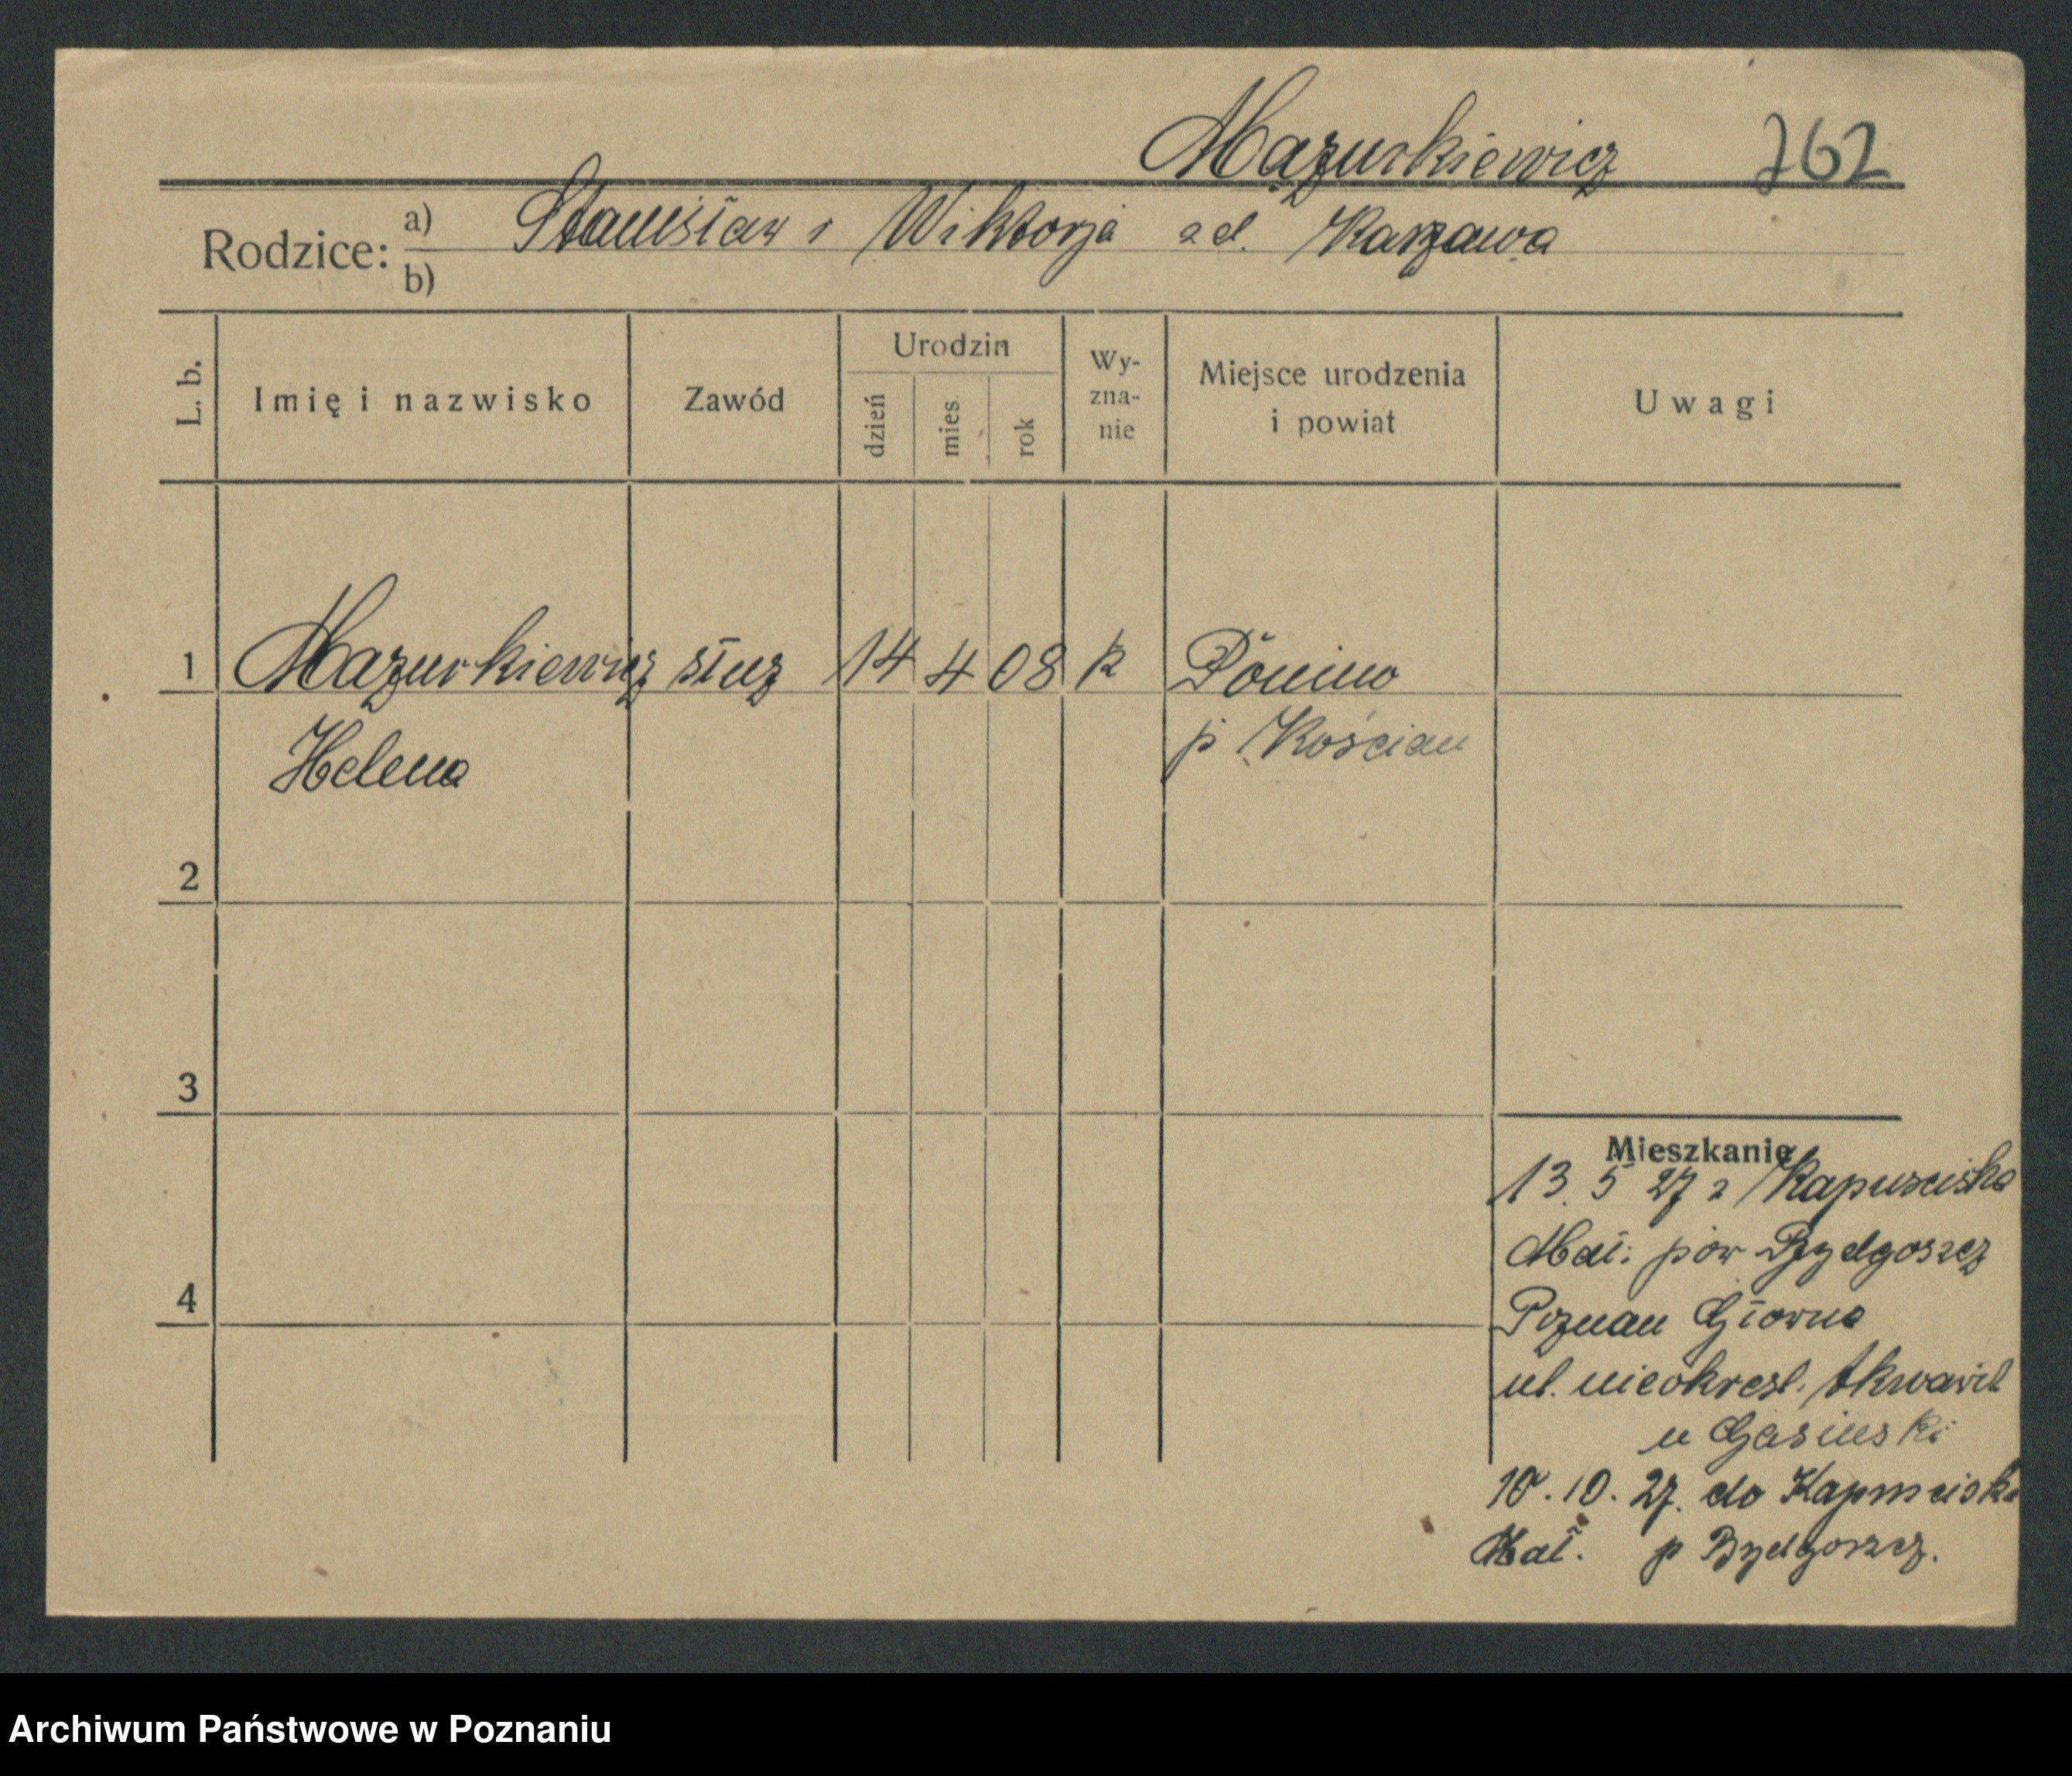 Mazurkiewicz 762
Rodzice: a) Stanisław i Wiktorja z d. Karzawa
b)
L. b. Imię i nazwisko Zawód Urodzin dzień mies. rok Wy-zna-nie Miejsce urodzenia i powiat Uwagi
1 Mazurkiewicz służ 14 4 08 k Ponino
Helena p Kościan
2
3
4
Mieszkanie
13. 5 27 z Kapuściska
Mał: pow Bydgoszcz
Poznan Główna
ul. nieokresl.
u Gasinski
10. 10. 27. do Kapuściska
Mał. p Bydgoszcz.
Archiwum Państwowe w Poznaniu